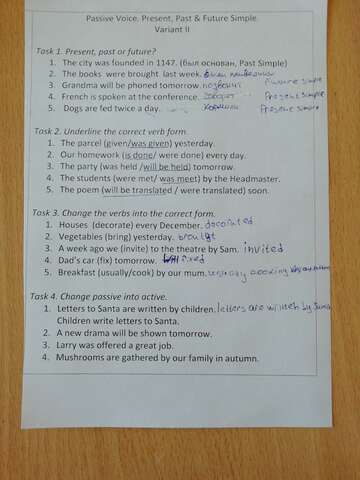 Passive Voice. Present, Past & Future Simple.
Variant II
Task 1. Present, past or future?
1. The city was founded in 1147. (был основан, Past Simple)
2. The books were brought last week.
3. Grandma will be phoned tomorrow. Future Simple
4. French is spoken at the conference. Present Simple
5. Dogs are fed twice a day. Present Simple
Task 2. Underline the correct verb form.
1. The parcel (given/was given) yesterday.
2. Our homework (is done/ were done) every day.
3. The party (was held /will be held) tomorrow.
4. The students (were met/ was meet) by the Headmaster.
5. The poem (will be translated / were translated) soon.
Task 3. Change the verbs into the correct form.
1. Houses (decorate) every December.
2. Vegetables (bring) yesterday.
3. A week ago we (invite) to the theatre by Sam. invited
4. Dad's car (fix) tomorrow. fixed
5. Breakfast (usually/cook) by our mum.
Task 4. Change passive into active.
1. Letters to Santa are written by children. letters are written by
Children write letters to Santa.
2. A new drama will be shown tomorrow.
3. Larry was offered a great job.
4. Mushrooms are gathered by our family in autumn.